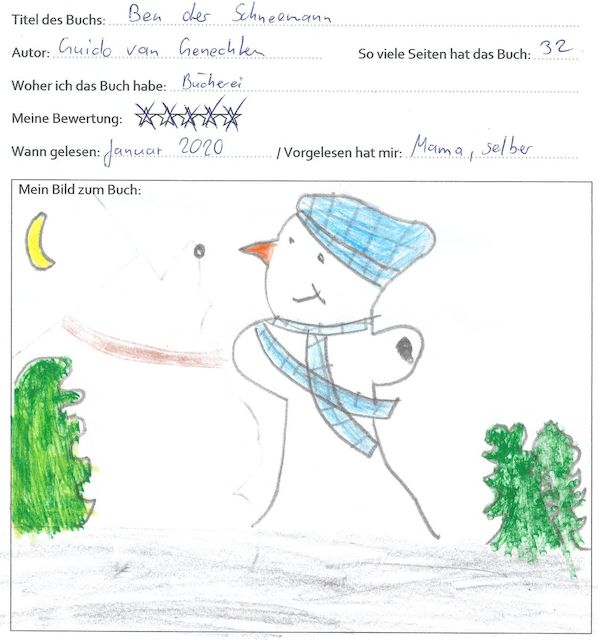 Titel des Buchs: Ben der Schneemann
Autor: Guido van Genechten So viele Seiten hat das Buch: 32
Woher ich das Buch habe: Bücherei
Meine Bewertung:
Wann gelesen: Januar 2020 / Vorgelesen hat mir: Mama, selber
Mein Bild zum Buch: